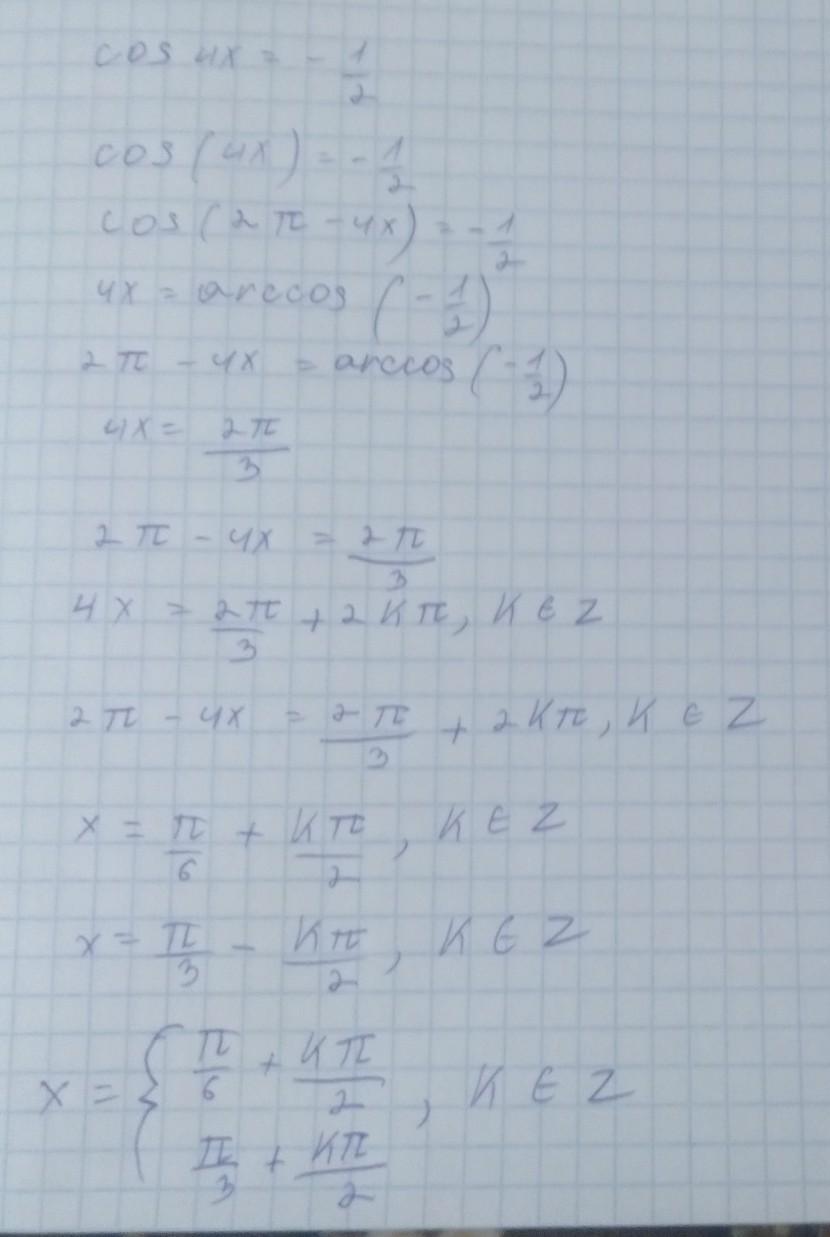 cos 4x = - 1/2
cos (4x) = - 1/2
cos (2π - 4x) = - 1/2
4x = arccos (- 1/2)
2π - 4x = arccos (- 1/2)
4x = 2π/3
2π - 4x = 2π/3
4x = 2π/3 + 2Kπ, K ∈ Z
2π - 4x = 2π/3 + 2Kπ, K ∈ Z
x = π/6 + Kπ/2, K ∈ Z
x = π/3 - Kπ/2, K ∈ Z
x = { π/6 + Kπ/2
π/3 + Kπ/2 , K ∈ Z